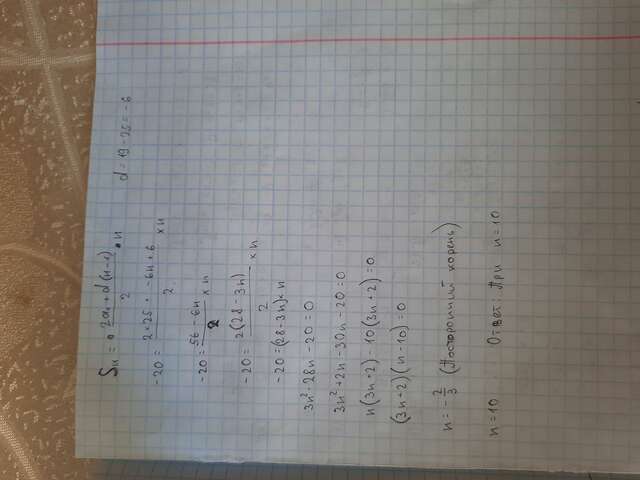 Sn = 2a1 + d(n-1) / 2 • n d = 19 - 25 = -6
-20 = 2×25 + -6n + 6 / 2 × n
-20 = 56 - 6n / 2 × n
-20 = 2(28 - 3n) / 2 × n
-20 = (28 - 3n) × n
3n² - 28n - 20 = 0
3n² + 2n - 30n - 20 = 0
n(3n + 2) - 10(3n + 2) = 0
(3n + 2)(n - 10) = 0
n = -2/3 (Посторонний корень)
n = 10 Ответ: При n = 10